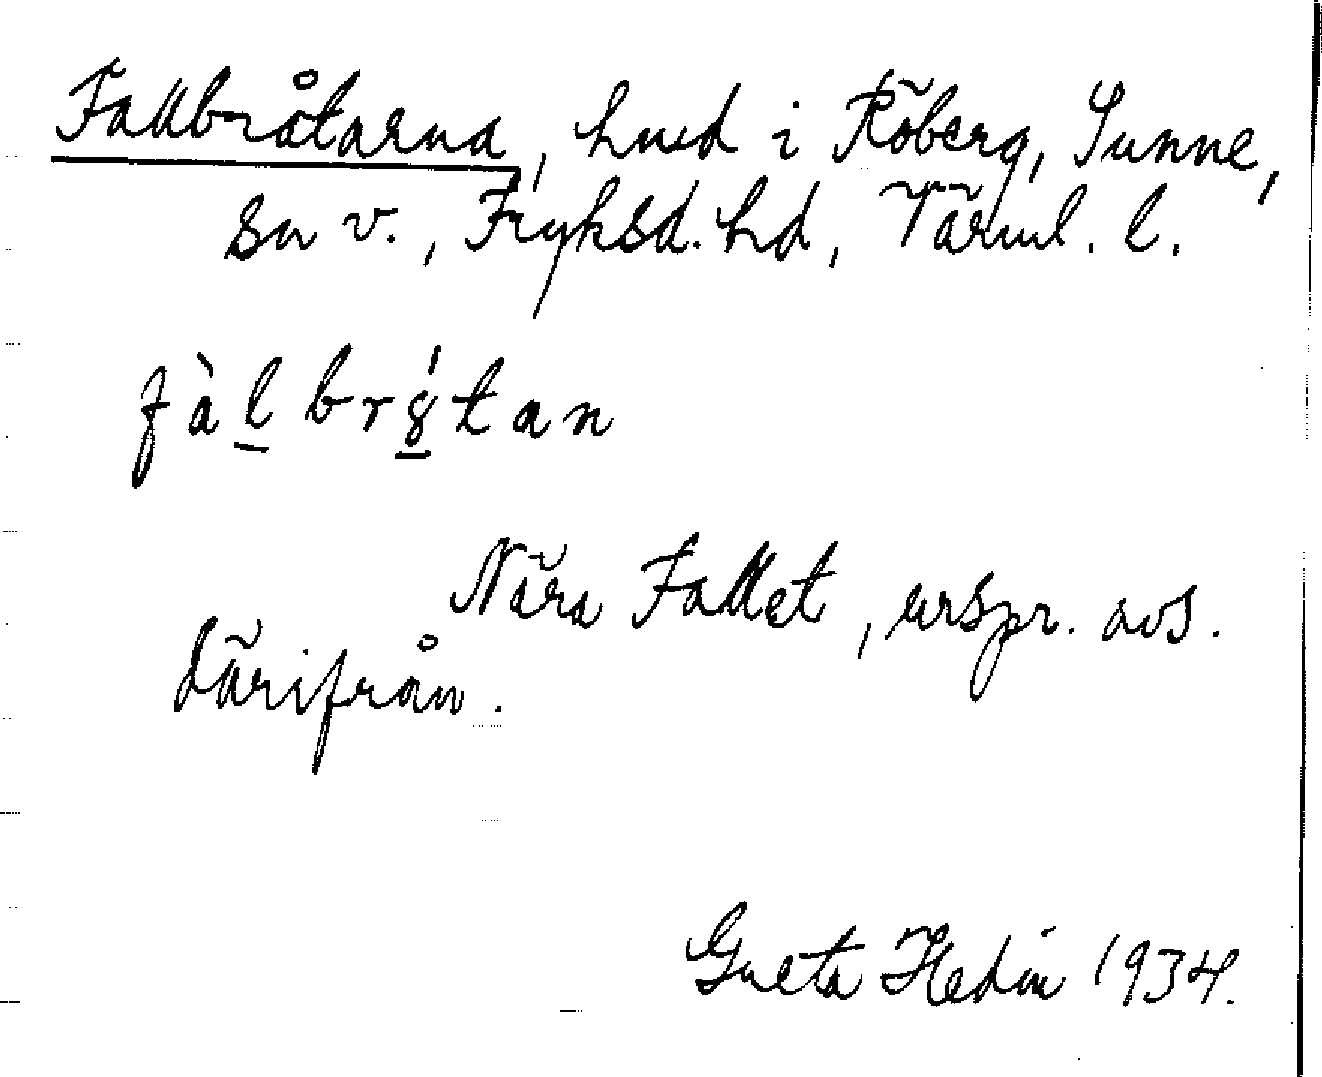 Fallbråtarna, hmd i Röberg, Sunne,
sn v., Fryksd. hd, Värml. l.
fàl brۧtan
Nära Fallet, urspr. avs.
därifrån.
Greta Hedin 1934.